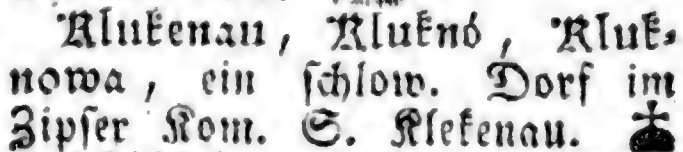 Klukenau, Kluknó, Kluk-
nowa, ein schlow. Dorf im
Zipser Kom. S. Klekenau.